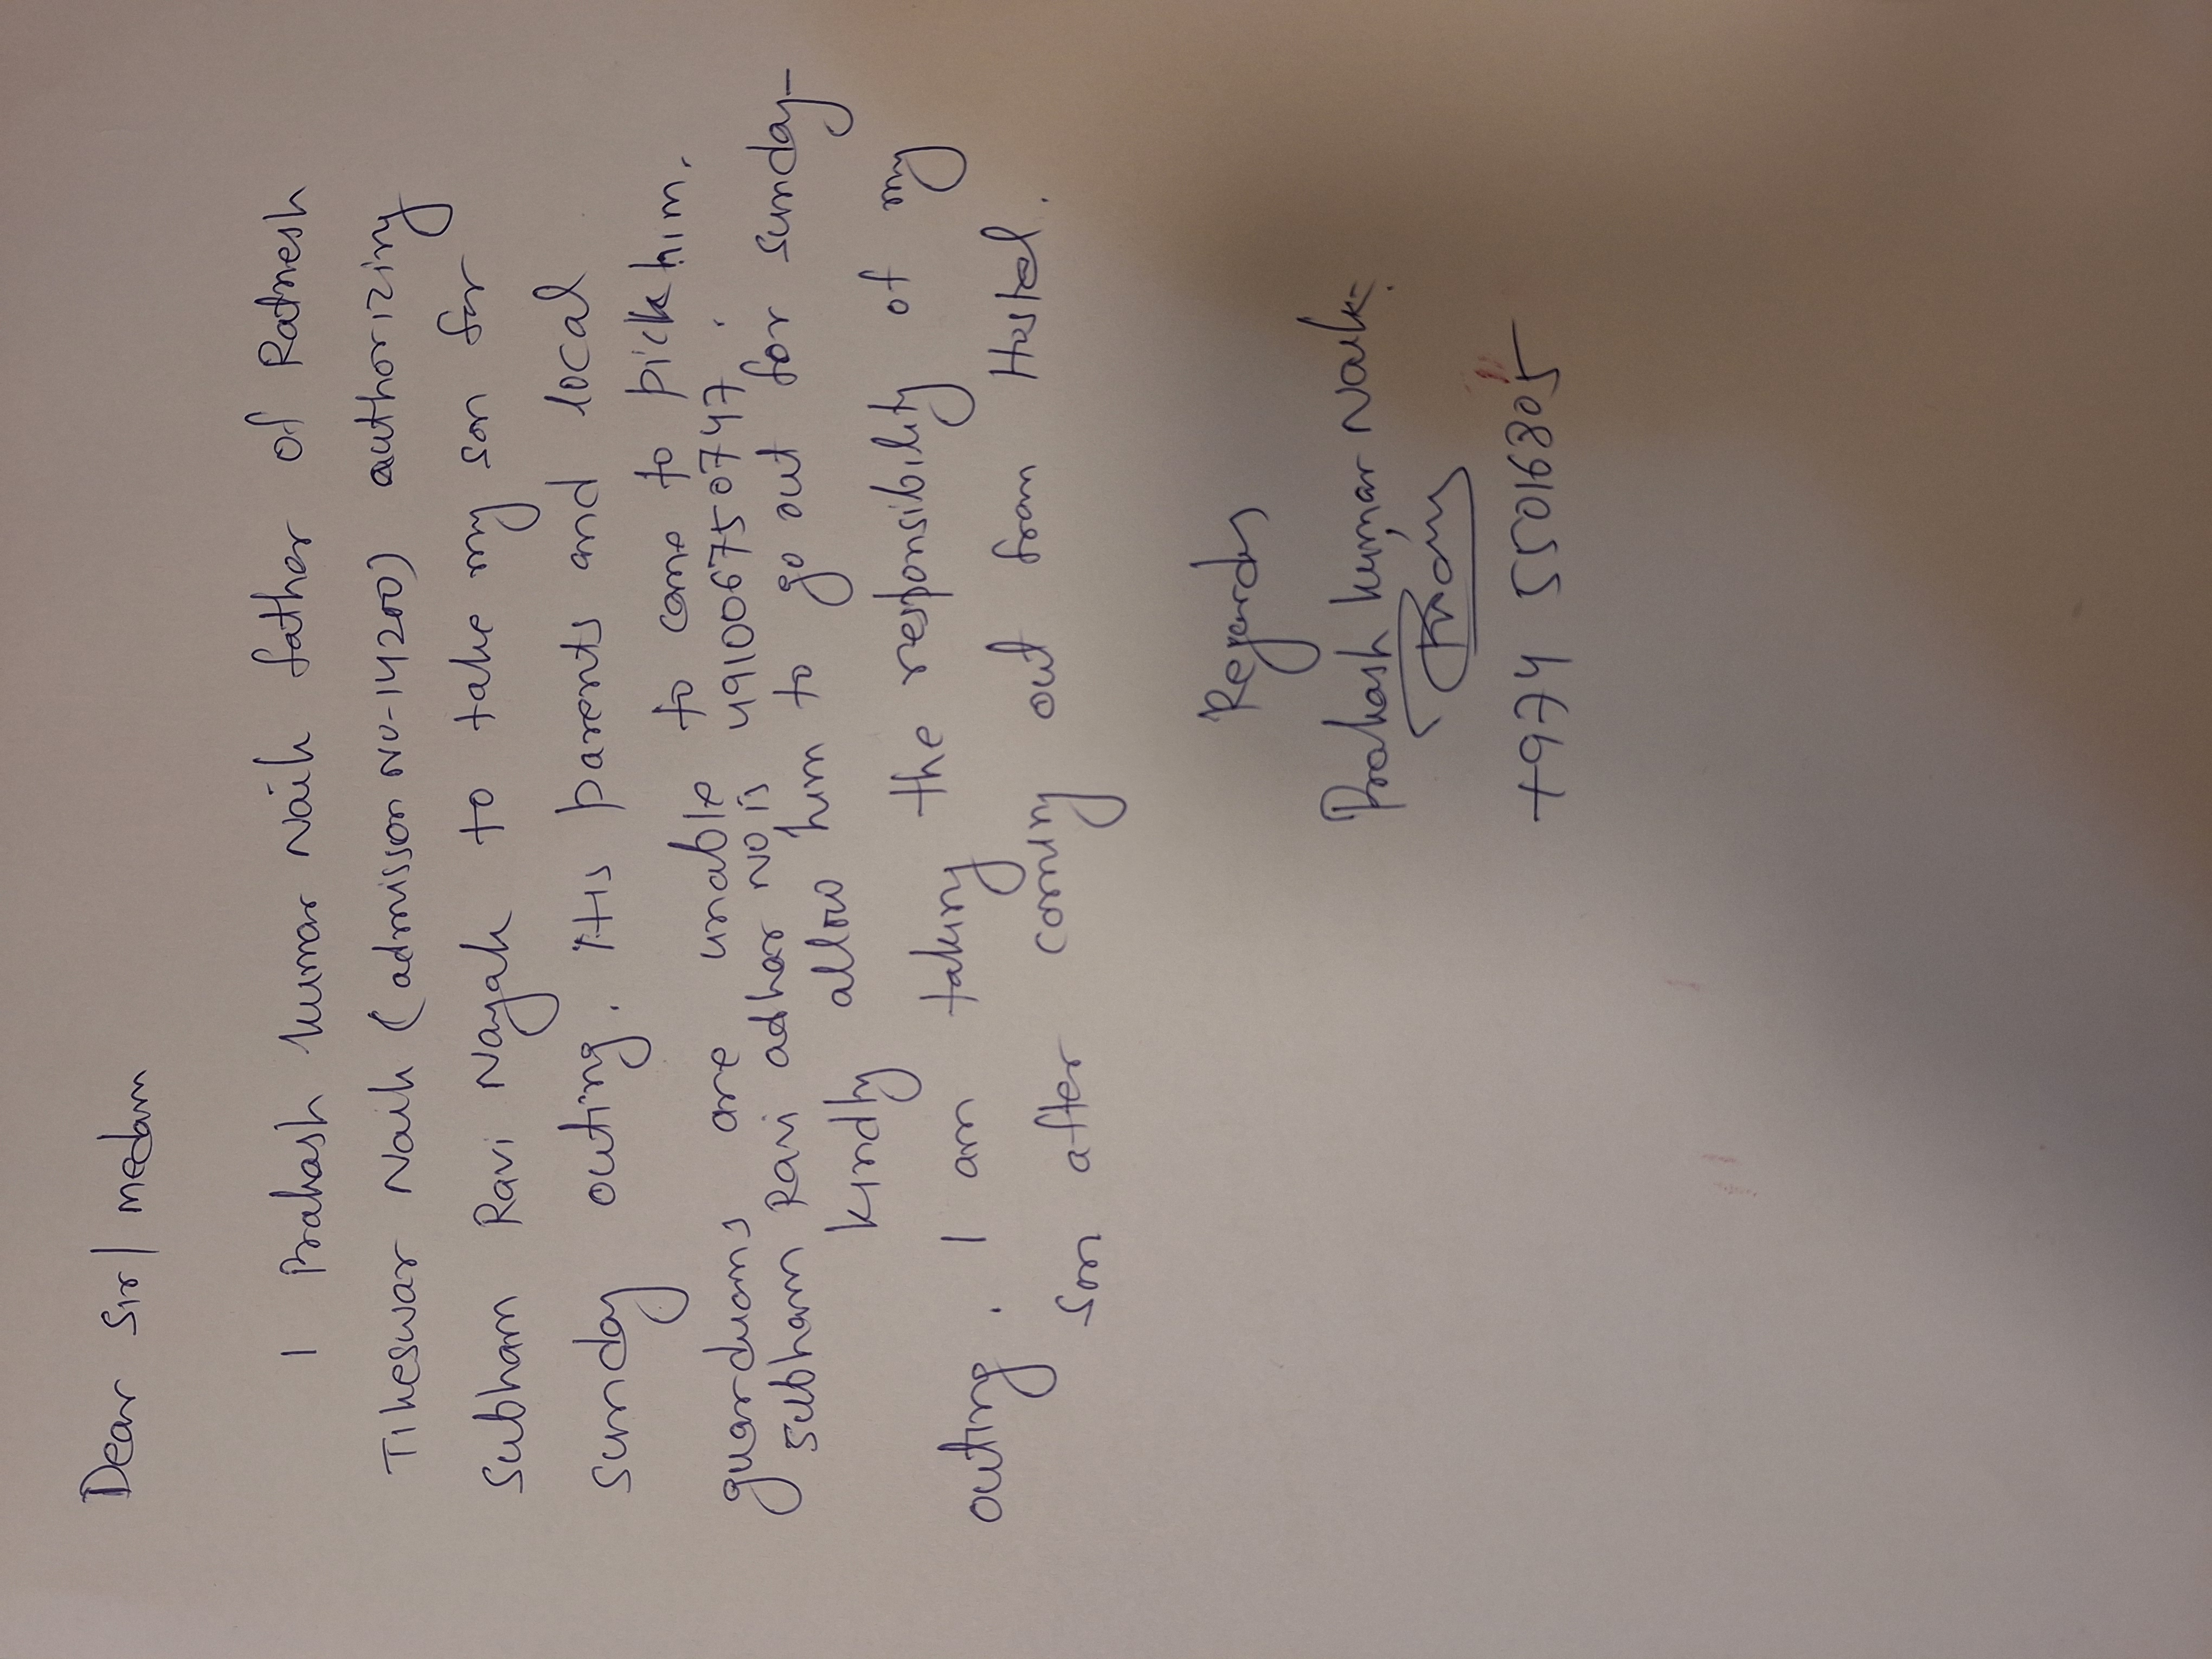 Dear Sir/medam
I Prakash kumar Naik father of Ratnesh
Tikeswar Naik (admisson No-14200) authorizing
Subham Ravi Nayak to take my son for
sunday outing. His parents and local
guardians are unable to come to pick him.
Subham Ravi adhar No is 491006750747.
Kindly allow him to go out for sunday
outing. I am taking the responsibility of my
son after coming out from Hostel.
Regards
Prakash kumar Naik.
+974 55016805